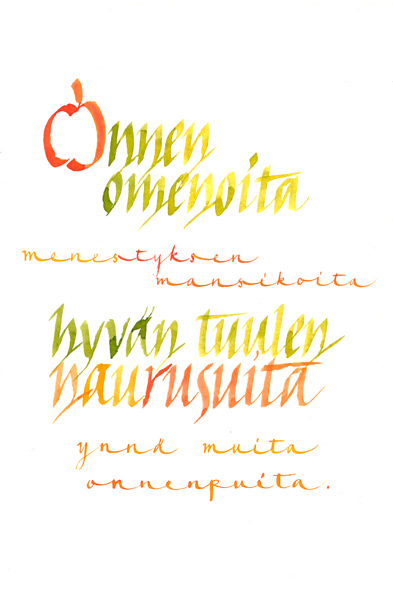 Onnen
omenoita
menestyksen
mansikoita
hyvän tuulen
naurusuita
ynnä muita
onnenpuita.